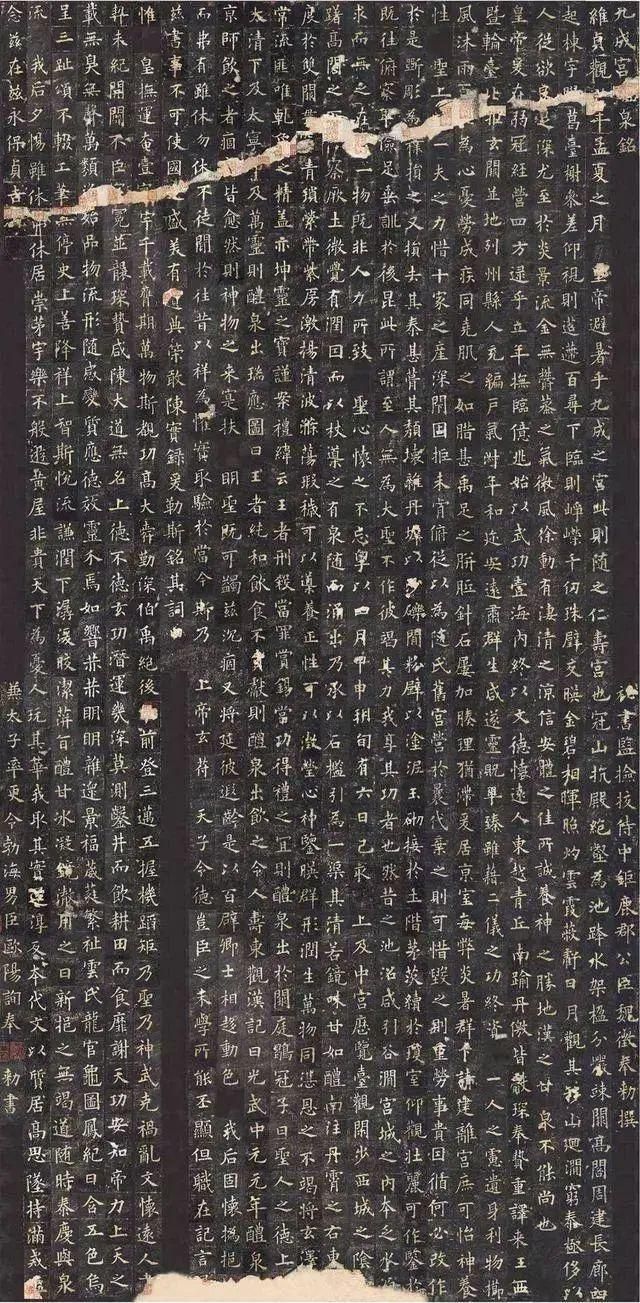 九成宮 泉銘 祕書監檢挍侍中鉅鹿郡公臣魏徵奉勅撰
維貞觀 年孟夏之月 皇帝避暑乎九成之宮此則隨之仁壽宮也冠山抗殿絕壑為池跨水架楹分巖竦闕高閣周建長廊四
起棟宇膠葛臺榭參差仰視則迢遰百尋下臨則崢嶸千仞珠璧交暎金碧相暉照灼雲霞蔽虧日月觀其移山迴澗窮泰極侈以
人從欲良足深尤至於炎景流金無鬱蒸之氣微風徐動有淒清之涼信安體之佳所誠養神之勝地漢之甘泉不能尚也
皇帝爰在弱冠經營四方逮乎立年撫臨億兆始以武功壹海內終以文德懷遠人東越青丘南踰丹徼皆獻琛奉贄重譯來王西
暨輪臺北拒玄闕並地列州縣人充編戶氣淑年和迩安遠肅群生咸遂靈貺畢臻雖藉二儀之功終資 一人之慮遺身利物櫛
風沐雨 為心憂勞成疾同堯肌之如腊甚禹足之胼胝針石屢加腠理猶滯爰居京室每弊炎暑群下請建離宮庶可怡神養
性 聖上 一夫之力惜十家之產深閉固拒未肯俯從以為隨氏舊宮營於曩代棄之則可惜毀之則重勞事貴因循何必改作
於是斲彫為樸損之又損去其泰甚葺其頹壞雜丹墀以沙礫間粉壁以塗泥玉砌接於土階茅茨續於瓊室仰觀壯麗可作鑒於
既往俯察卑儉足垂訓於後昆此所謂至人無為大聖不作彼竭其力我享其功者也然昔之池沼咸引谷澗宮城之內本乏水源
求而無之在 一物既非人力所致 聖心懷之不忘粵以四月甲申朔旬有六日己亥 上及中宮歷覽臺觀閑步西城之陰
躇高閣之 察厥土微覺有潤因而以杖導之有泉隨而涌出乃承以石檻引為一渠其清若鏡味甘如醴南注丹霄之右東
度於雙闕 青瑣縈帶紫房激揚清波滌蕩瑕穢可以導養正性可以澂瑩心神鑒暎群形潤生萬物同湛恩之不竭將玄澤
常流匪唯乾 之精蓋亦坤靈之寶謹案禮緯云王者刑殺當罪賞錫當功得禮之宜則醴泉出於闕庭鶡冠子曰聖人之德上
太清下及太寧 及萬靈則醴泉出瑞應圖曰王者純和飲食不貢獻則醴泉出飲之令人壽東觀漢記曰光武中元元年醴泉
京師飲之者痼 皆愈然則神物之來寔扶 明聖既可蠲茲沉痼又將延彼遐齡是以百辟卿士相趨動色 我后固懷撝挹
而弗有雖休勿休不徒聞於往昔以祥為懼實取驗於當今斯乃 上帝玄符 天子令德豈臣之末學所能丕顯但職在記言
茲書事不可使國之盛美有遺典策敢陳實錄爰勒斯銘其詞曰
惟 皇撫運奄壹寰宇千載膺期萬物斯覩功高大舜勤深伯禹絕後 前登三邁五握機蹈矩乃聖乃神武克禍亂文懷遠人
契未紀開闢不臣冠冕並襲琛贄咸陳大道無名上德不德玄功潛運幾深莫測鑿井而飲耕田而食靡謝天功安知帝力上天之
載無臭無聲萬類資始品物流形隨感變質應德效靈介焉如響赫赫明明雜遝景福葳蕤繁祉雲氏龍官龜圖鳳紀日含五色烏
呈三趾頌不輟工筆無停史上善降祥上智斯悅流謙潤下潺湲皎潔蓱旨醴甘冰凝鏡澈用之日新挹之無竭道隨時泰慶與泉
流 我后夕惕雖休弗休居崇茅宇樂不般遊黃屋非貴天下為憂人玩其華我取其實還淳反本代文以質居高思墜持滿戒
念茲在茲永保貞吉 兼太子率更令勃海男臣歐陽詢奉 勅書